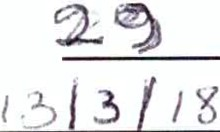 29
13/3/18